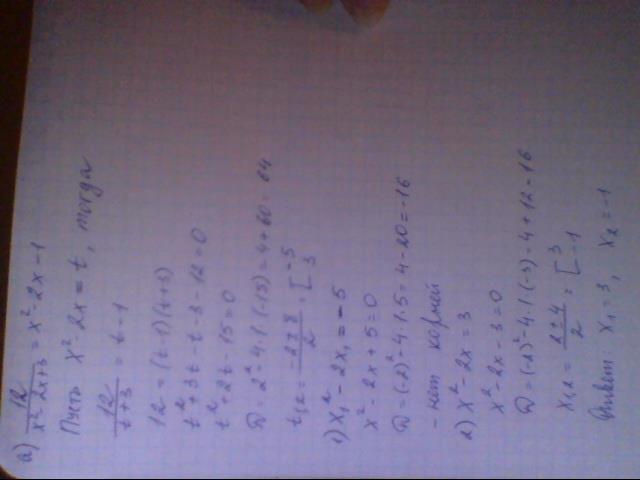 а) 12/(x²-2x+3) = x²-2x-1
Пусть x²-2x=t, тогда
12/(t+3) = t-1
12=(t-1)(t+3)
t²+3t-t-3-12=0
t²+2t-15=0
D=2²-4·1(-15)=4+60=64
t₁,₂=(-2±8)/2=[-5 3
1) x₁²-2x₁=-5
x²-2x+5=0
D=(-2)²-4·1·5=4-20=-16
- нет корней
2) x²-2x=3
x²-2x-3=0
D=(-2)²-4·1(-3)=4+12=16
x₁,₂=(2±4)/2=[3 -1
Ответ: x₁=3, x₂=-1